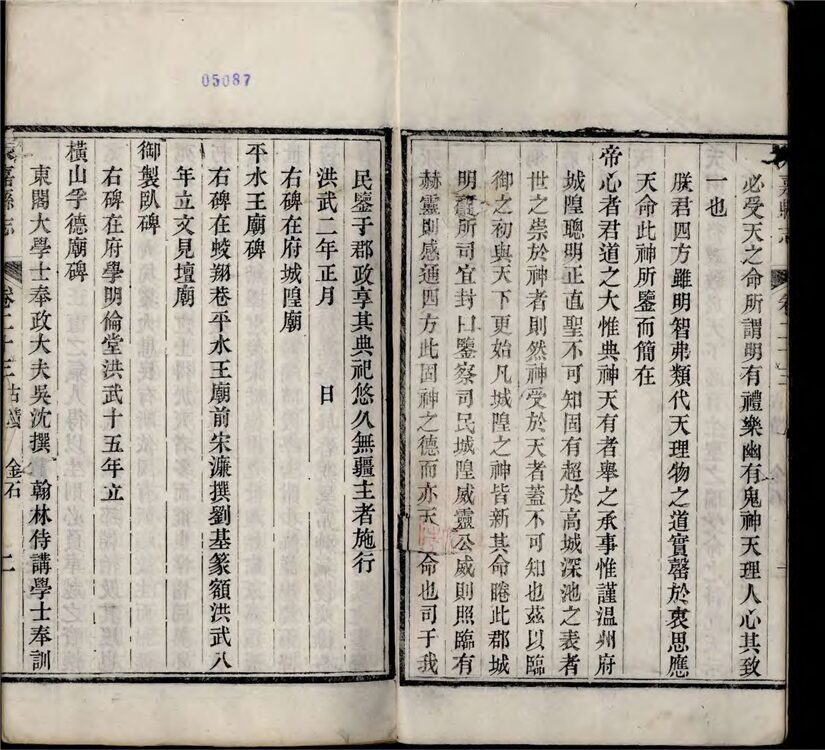 必受天之命所謂明有禮樂幽有鬼神天理人心其致
一也
朕君四方雖明智弗類代天理物之道實罄於衷思應
天命此神所鑒而簡在
帝心者君道之大惟典神天有者舉之承事惟謹温州府
城隍聰明正直聖不可知固有超於高城深池之表者
世之崇於神者則然神受於天者蓋不可知也茲以臨
御之初與天下更始凡城隍之神皆新其命睠此郡城
明靈所司宜封曰鑒察司民城隍威靈公威則照臨有
赫靈則感通四方此固神之德而亦天命也司于我
民鑒于郡政享其典祀悠久無疆主者施行
洪武二年正月 日
右碑在府城隍廟
平水王廟碑
右碑在蛟翔巷平水王廟前宋濂撰劉基篆額洪武八
年立文見壇廟
御製臥碑
右碑在府學明倫堂洪武十五年立
橫山孚德廟碑
東閣大學士奉政大夫吳沈撰 翰林侍講學士奉訓
嘉縣志 卷二十三 古蹟 金石 二
05087